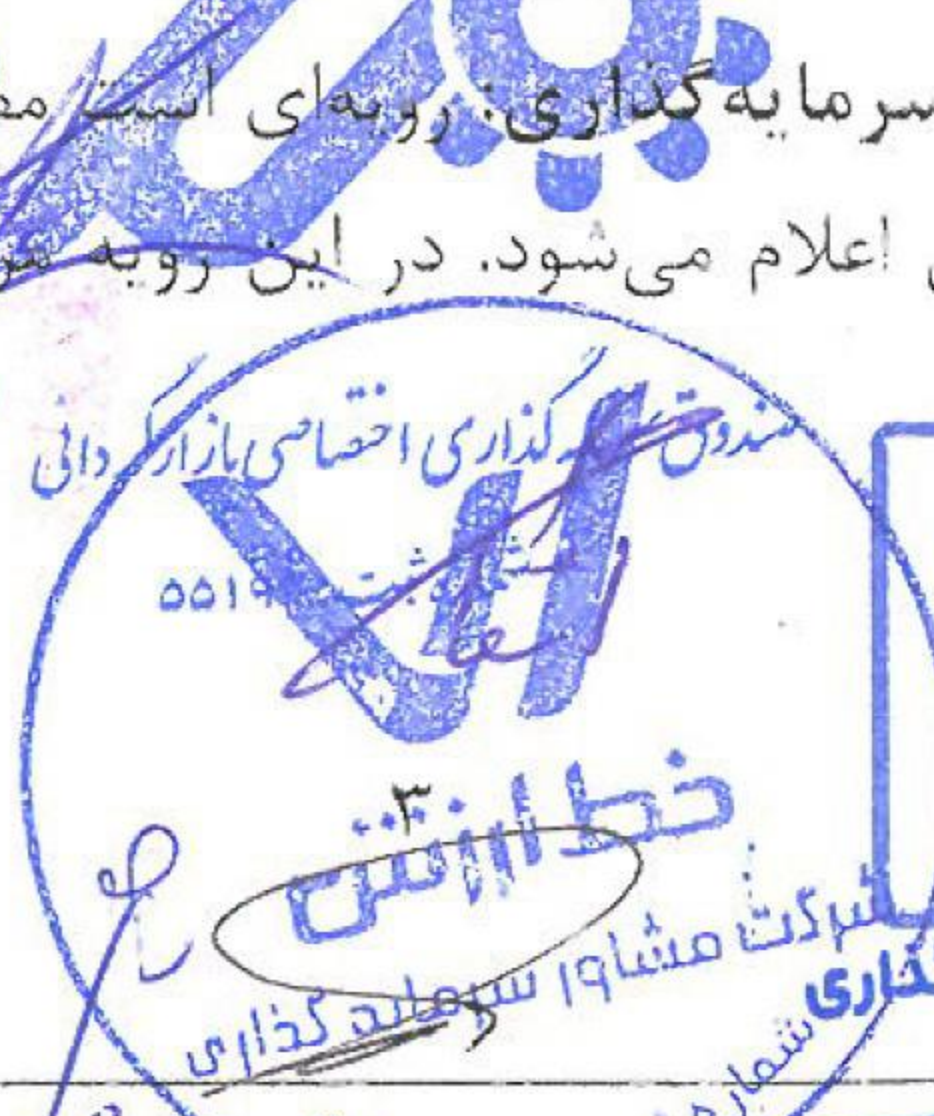 سرمایه‌گذاری: رویه‌ای است
اعلام می‌شود. در این رویه
صندوق سرمایه گذاری اختصاصی بازارگردانی
شماره ثبت
۳
خط ارزش
شرکت مشاور سرمایه گذاری
گذاری
شماره